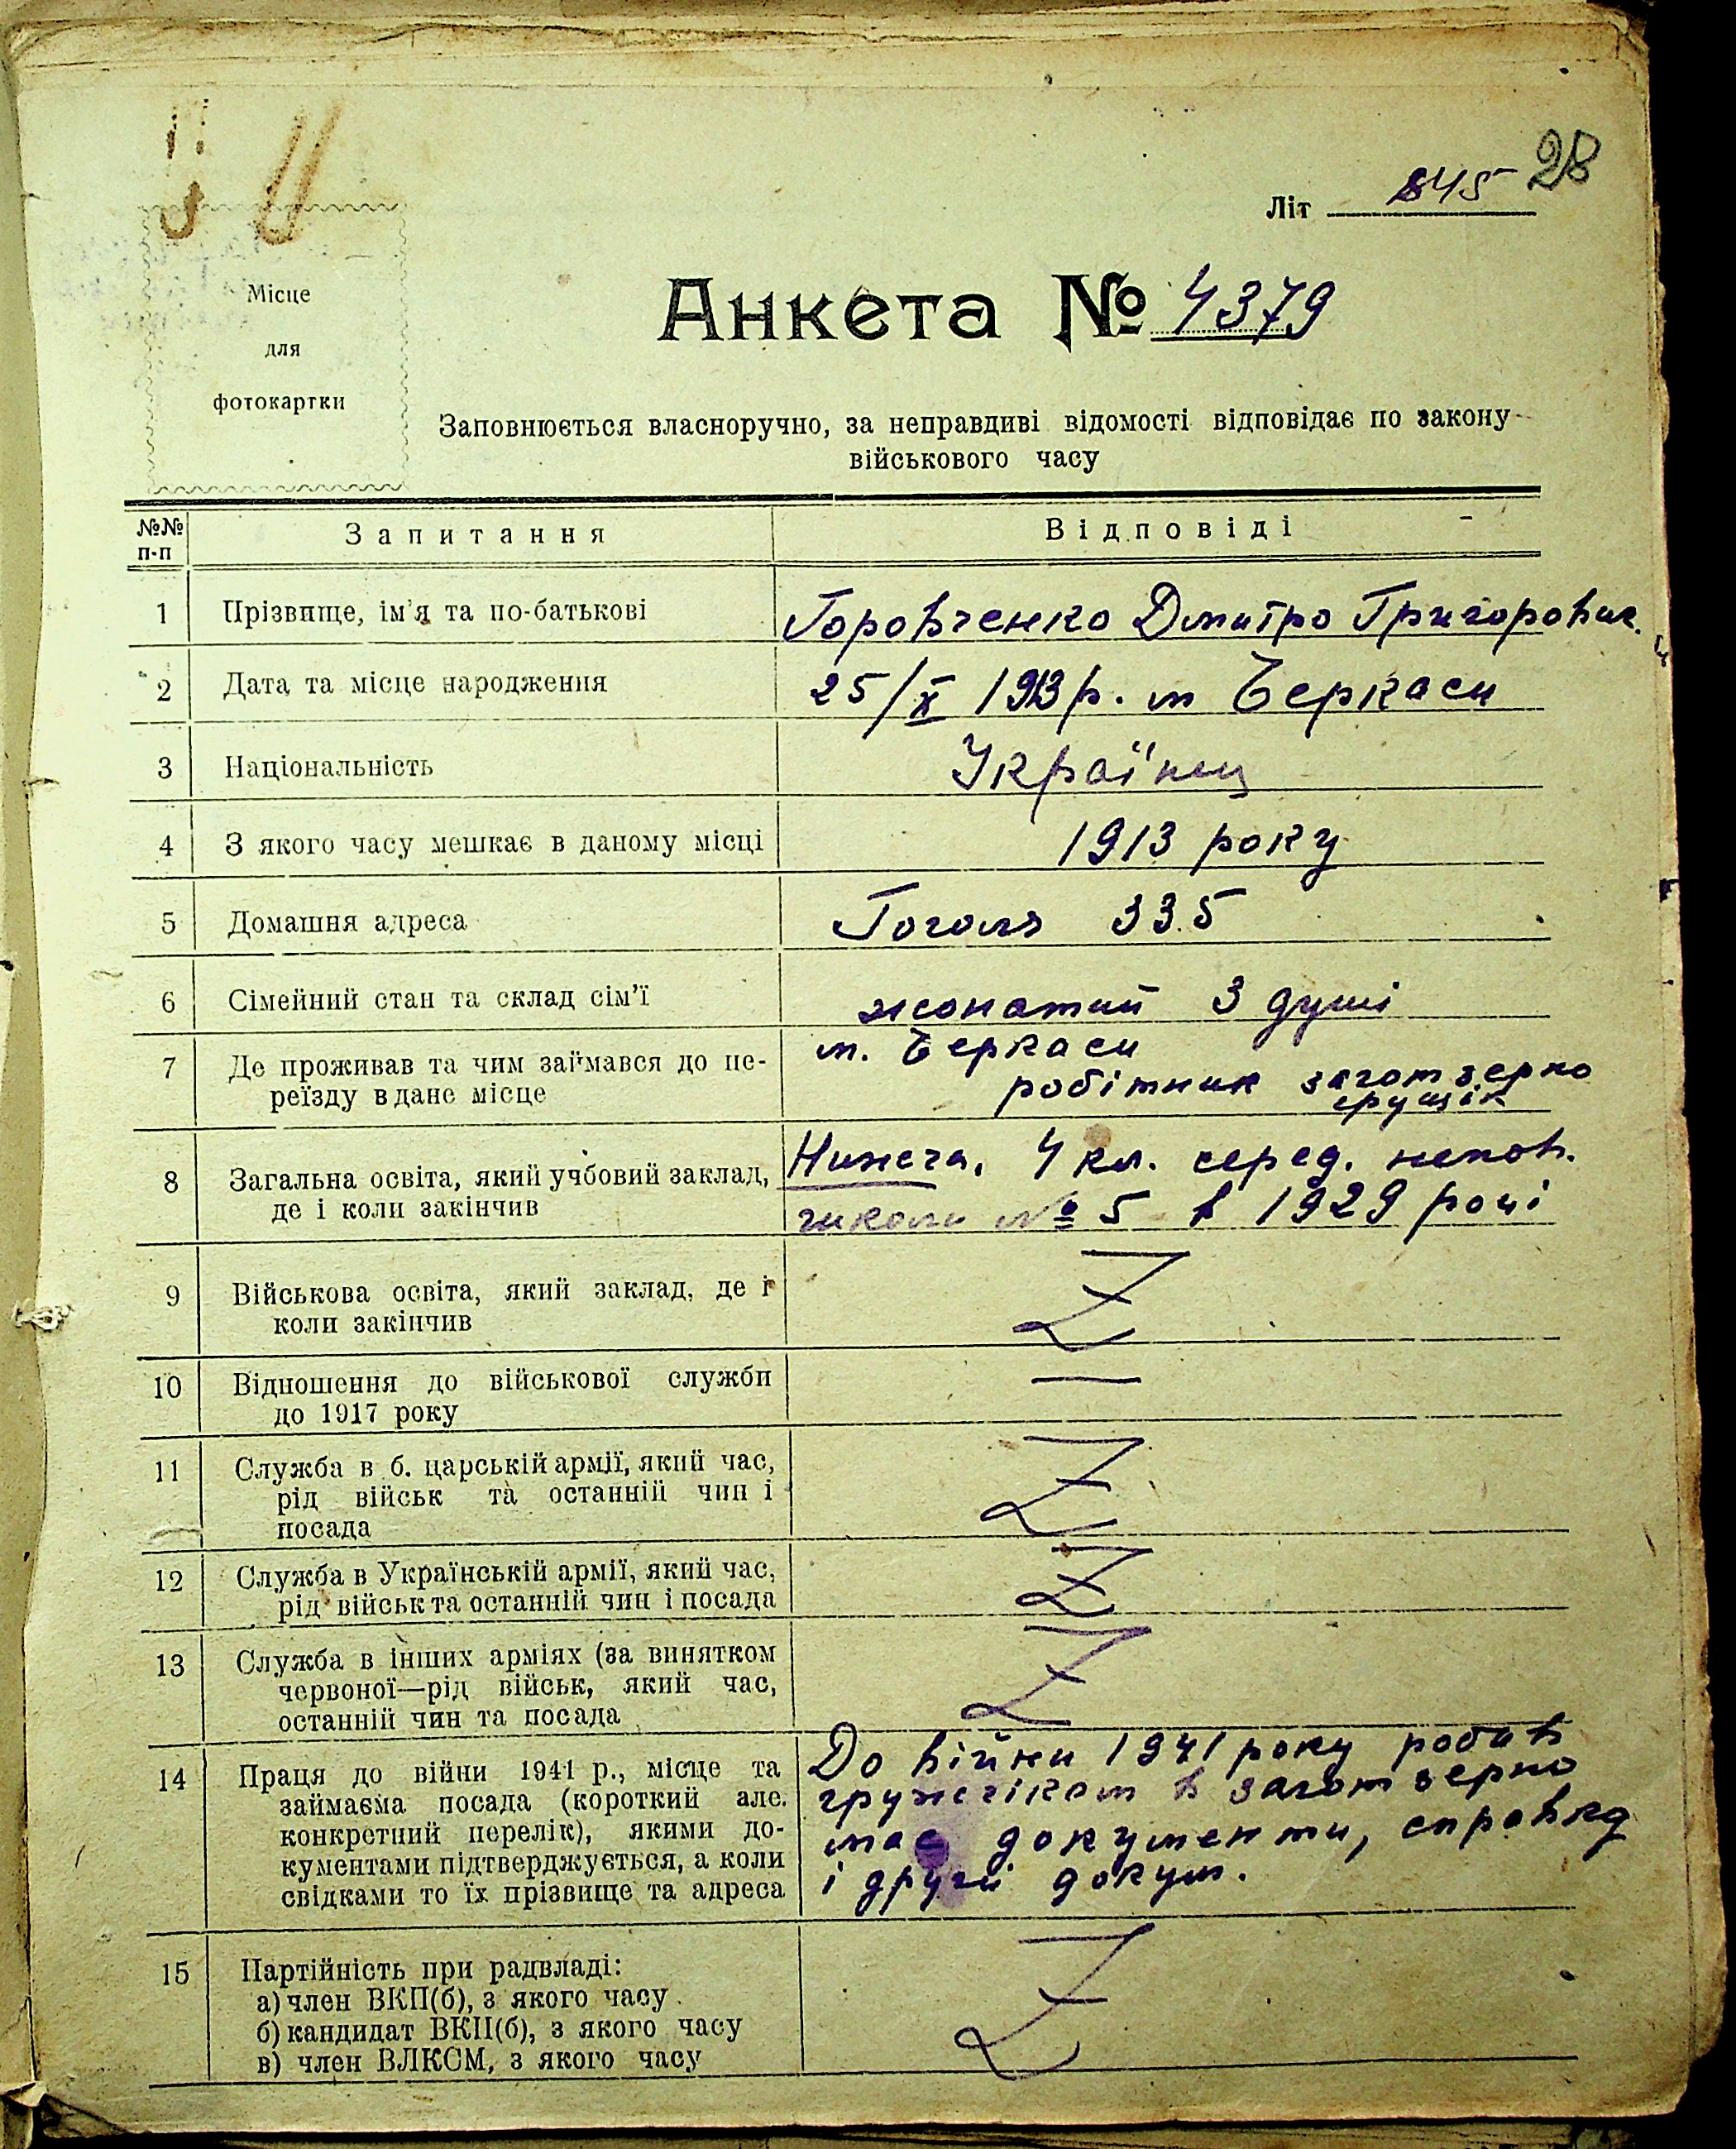 28
Літ 845
Місце
для
фотокартки
Анкета № 4379
Заповнюється власноручно, за неправдиві відомості відповідає по закону
військового часу
№№ п-п Запитання Відповіді
1 Прізвище, ім'я та по-батькові Горовченко Дмитро Григорович.
2 Дата та місце народження 25/X 1913 р. м Черкаси
3 Національність Українец
4 З якого часу мешкає в даному місці 1913 року
5 Домашня адреса Гоголя 335
6 Сімейний стан та склад сім'ї жонатий 3 душі
7 Де проживав та чим займався до пе- м. Черкаси
реїзду в дане місце робітник заготзерно
грущік
8 Загальна освіта, який учбовий заклад, Нижеча, 4 кл. серед. непов.
де і коли закінчив школи № 5 в 1929 році
9 Військова освіта, який заклад, де і
коли закінчив
10 Відношення до військової служби —
до 1917 року
11 Служба в б. царській армії, який час,
рід військ та останній чин і
посада
12 Служба в Українській армії, який час,
рід військ та останній чин і посада
13 Служба в інших арміях (за винятком
червоної—рід військ, який час,
останній чин та посада
14 Праця до війни 1941 р., місце та До війни 1941 року робив
займаєма посада (короткий але. гружчіком в заготзерно
конкретний перелік), якими до- має документи, справкд
кументами підтверджується, а коли і другі докум.
свідками то їх прізвище та адреса
15 Партійність при радвладі:
а) член ВКП(б), з якого часу
б) кандидат ВКП(б), з якого часу
в) член ВЛКСМ, з якого часу